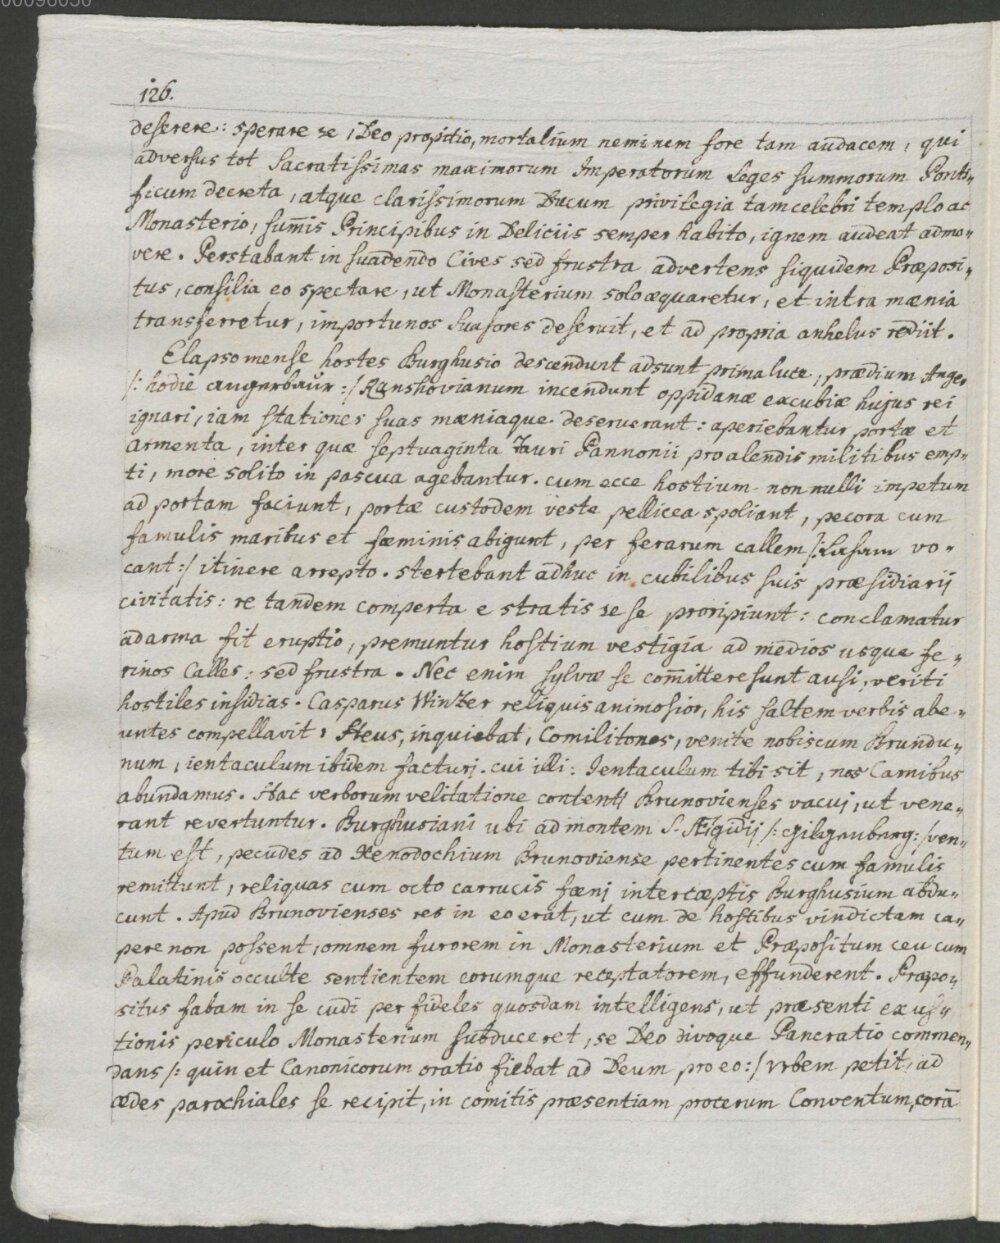 00096030
126.
deserere: sperare se, Deo propitio, mortalium neminem fore tam audacem, qui
adversus tot Sacratissimas maximorum Imperatorum Leges summorum Ponti„
ficum decreta, atque clarissimorum Ducum privilegia tam celebri templo ac
Monasterio, sum̄is Principibus in Deliciis semper habito, ignem audeat admo„
vere. Perstabant in suadendo Cives sed frustra advertens siquidem Præposi„
tus, consilia eo spectare, ut Monasterium solo æquaretur, et intra mænia
transferretur, importunos Suasores deseruit, et ad propria anhelus rediit.
Elapso mense hostes Burghusio descendunt adsunt prima luce, prædium Anger
/: hodie angerbaür :/ Ranshovianum incendunt oppidanæ excubiæ hujus rei
ignari, iam stationes suas mæniaque deseruerant: aperiebantur portæ et
armenta, inter quæ septuaginta Tauri Pannonii pro alendis militibus emp„
ti, more solito in pascua agebantur. cum ecce hostium nonnulli impetum
ad portam faciunt, portæ custodem veste pellicea spoliant, pecora cum
famulis maribus et fæminis abigunt, per ferarum callem /: vo„
cant :/ itinere arrepto. stertebant adhuc in cubilibus suis præsidiarij
civitatis: re tandem comperta e stratis sese proripiunt: conclamatur
ad arma fit eruptio, premuntur hostium vestigia ad medios usque fe„
rinos Calles: sed frustra. Nec enim sylvæ se com̄ittere sunt ausi, veriti
hostiles insidias. Casparus Winzer reliquis animosior, his saltem verbis abe„
untes compellavit, Heus, inquiebat, Comilitones, venite nobiscum Brundu„
num, ientaculum ibidem facturi. cui illi: Ientaculum tibi sit, nos Carnibus
abundamus. Hac verborum velitatione contenti Brunovienses vacui, ut vene„
rant revertuntur. Burghusiani ubi ad montem S. Ægidij /: gilgenburg: / ven„
tum est, pecudes ad Xenodochium Brunoviense pertinentes cum famulis
remittunt, reliquas cum octo carrucis fæni interceptis Burghusium abdu„
cunt. Apud Brunovienses res in eo erat, ut cum de hostibus vindictam ca„
pere non possent, omnem furorem in Monasterium et Præpositum ceu cum
Palatinis occulte sentientem eorumque receptatorem, effunderent. Præpo„
situs fabam in se cudi per fideles quosdam intelligens, ut præsenti exus„
tionis periculo Monasterium subduceret, se Deo divoque Pancratio commen„
dans /: quin et Canonicorum oratio fiebat ad Deum pro eo :/ urbem petit, ad
ædes parochiales se recipit, in comitis præsentiam procerum Conventum, corā